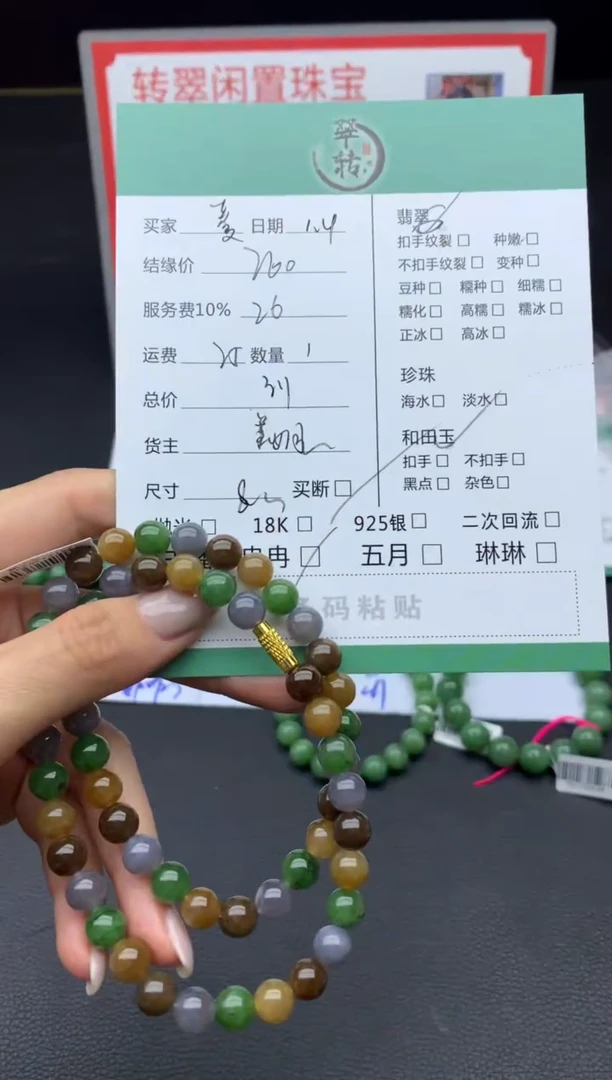 转翠闲置珠宝
翠轱
买家 夏 日期 1.4
结缘价 260
服务费10% 26
运费 25 数量 1
总价 311
货主
尺寸 买断
翡翠
扣手纹裂 种嫩
不扣手纹裂 变种
豆种 糯种 细糯
糯化 高糯 糯冰
正冰 高冰
珍珠
海水 淡水
和田玉
扣手 不扣手
黑点 杂色
抛光 18K 925银 二次回流
冉冉 五月 琳琳
码粘贴